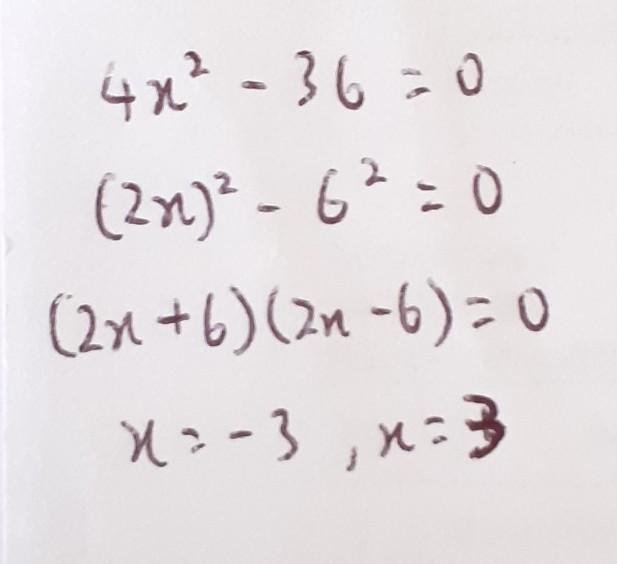 4x² - 36 = 0
(2x)² - 6² = 0
(2x+6)(2x-6)=0
x=-3, x=3